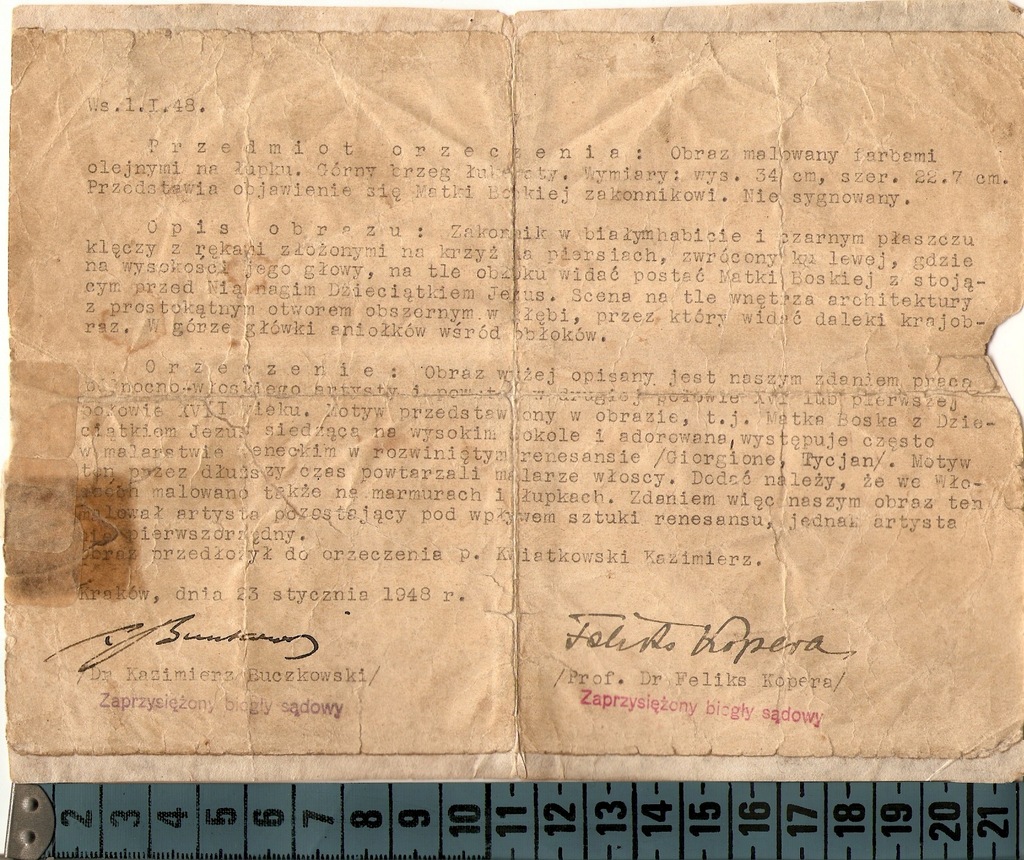 Ws.1.I.48.
Przedmiot orzeczenia: Obraz malowany farbami
olejnymi na łupku. Górny brzeg Wymiary: wys. 34 cm, szer. 22.7 cm.
Przedstawia objawienie się Matki Boskiej zakonnikowi. Nie sygnowany.
Opis obrazu: Zakonnik w białymhabicie i czarnym płaszczu
klęczy z rękami złożonymi na krzyż na piersiach, zwrócony ku lewej, gdzie
na wysokości jego głowy, na tle obłoku widać postać Matki Boskiej z stoją-
cym przed Nią nagim Dzieciątkiem Jezus. Scena na tle wnętrza architektury
z prostokątnym otworem obszernym w głębi, przez który widać daleki krajob-
raz. W górze główki aniołków wśród obłoków.
Orzeczenie: Obraz wyżej opisany jest naszym zdaniem pracą
północno-włoskiego artysty i w drugiej połowie XVI lub pierwszej
połowie XVII wieku. Motyw przedstawiony w obrazie, t.j. Matka Boska z Dzie-
ciątkiem Jezus siedzącą na wysokim cokole i adorowana, występuje często
w malarstwie weneckim w rozwiniętym renesansie /Giorgione, Tycjan/. Motyw
ten przez dłuższy czas powtarzali malarze włoscy. Dodać należy, że we Wło-
szech malowano także na marmurach i łupkach. Zdaniem więc naszym obraz ten
malował artysta pozostający pod wpływem sztuki renesansu, jednak artysta
nie pierwszorzędny.
Obraz przedłożył do orzeczenia p. Kwiatkowski Kazimierz.
Kraków, dnia 23 stycznia 1948 r.
Feliks Kopera
/Dr Kazimierz Buczkowski/ /Prof. Dr Feliks Kopera/
Zaprzysiężony biegły sądowy Zaprzysiężony biegły sądowy
2 3 4 5 6 7 8 9 10 11 12 13 14 15 16 17 18 19 20 21